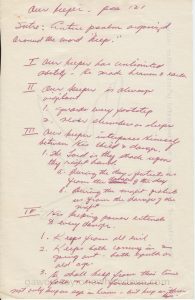 Our keeper - psa 121
Intro: Entire psalm
around the word keep."
I Our keeper has unlimited
ability - he made heaven & earth
II Our keeper is always
vigilant
1. guards every footstep
2. never slumbers or sleeps
III Our keeper interposes himself
between His child & danger.
1. The Lord is thy shade upon
thy right hand
a. During the day - protects us
from the of the day
b. During the night protects
us from the dangers of the
night
IV His keeping power extends
to every danger.
1. Keeps from all evil
2. Keeps both coming in and
going out - both youth and
old age
3. He shall keep from this time
forth
not only keep us safe in but keep us